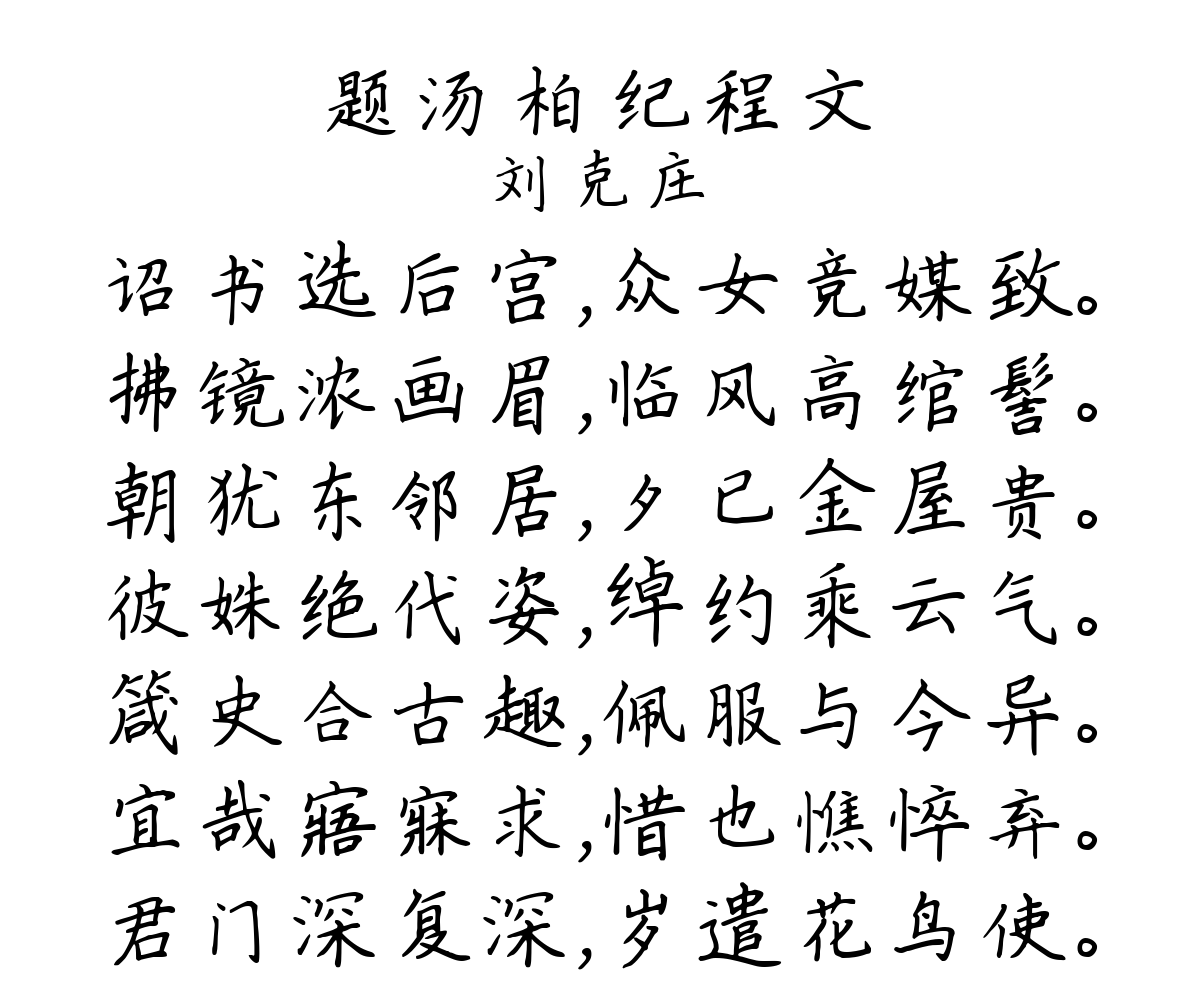 题汤柏纪程文
刘克庄
诏书选后宫,众女竞媒致。
拂镜浓画眉,临风高绾髻。
朝犹东邻居,夕已金屋贵。
彼姝绝代姿,绰约乘云气。
箴史合古趣,佩服与今异。
宜哉寤寐求,惜也憔悴弃。
君门深复深,岁遣花鸟使。